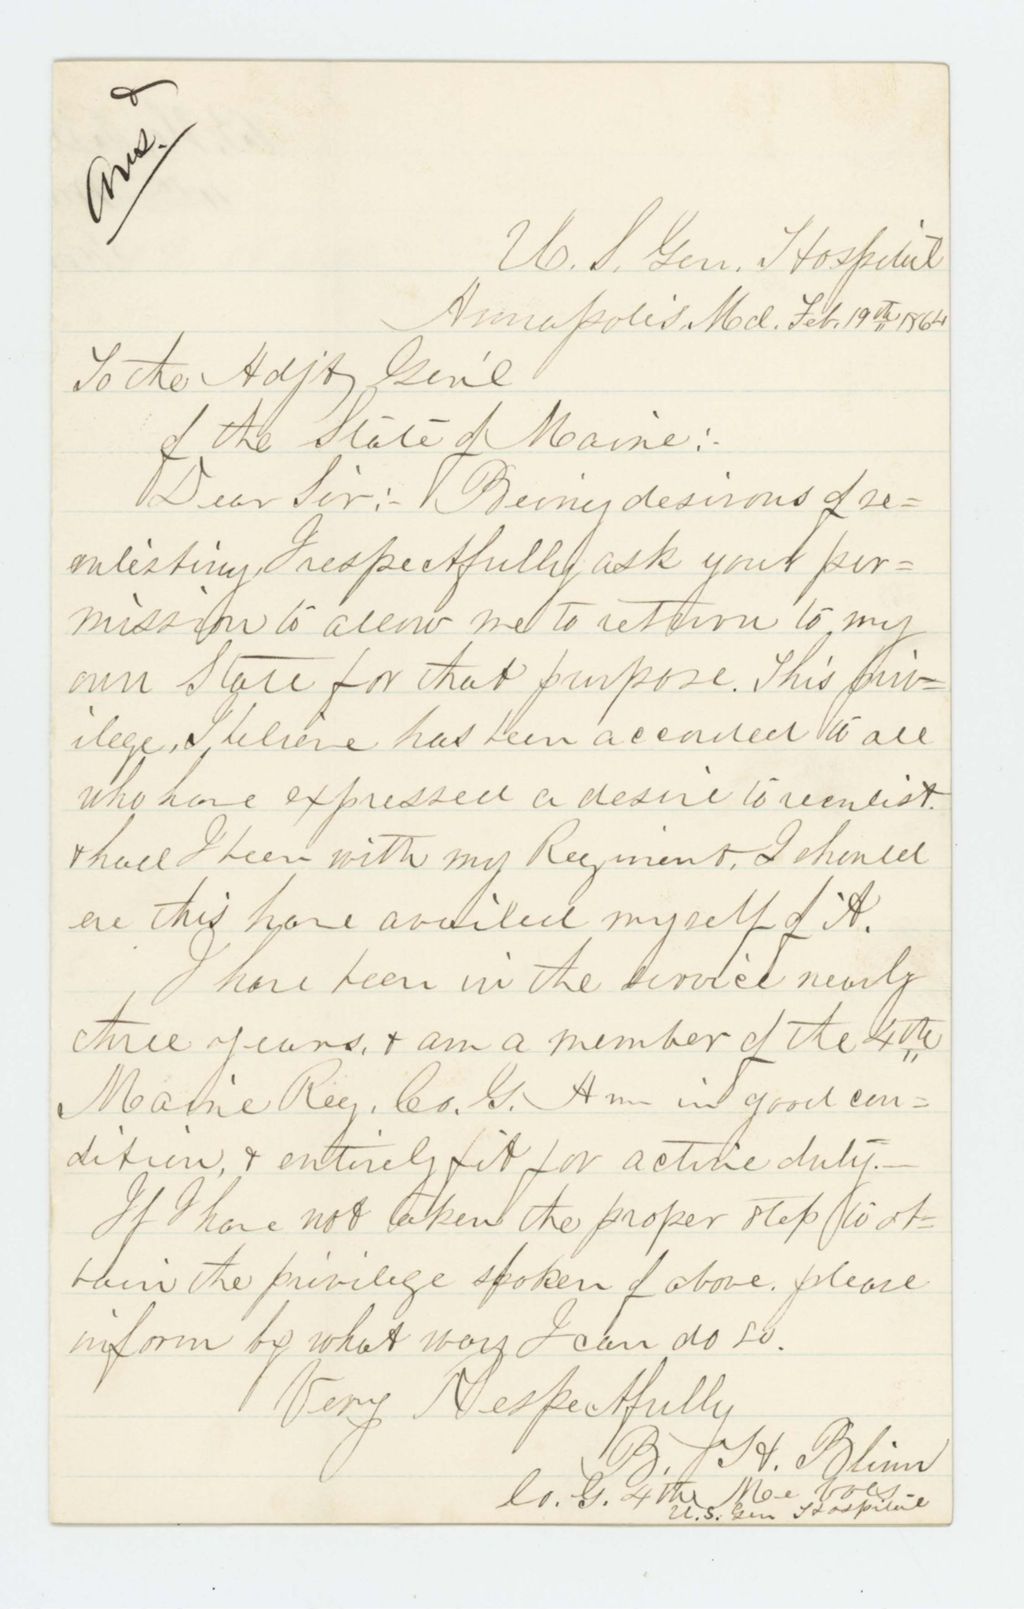 Ans. d
U. S. Gen. Hospital
Annapolis Md. Feb. 19th 1864
To the Adjt Gen'l
of the State of Maine:-
Dear Sir:- Being desirous of re=
enlisting I respectfully ask your per=
mission to allow me to return to my
own State for that purpose. This priv=
ilege, I believe has been accorded to all
who have expressed a desire to reenlist.
& had I been with my Regiment, I should
ere this have availed myself of it.
I have been in the service nearly
three years, & am a member of the 4th
Maine Reg. Co. G. Am in good con=
dition, & entirely fit for active duty.—
If I have not taken the proper step to ob=
tain the privilege spoken of above, please
inform by what way I can do so.
Very Respectfully
B. H. Blinn
Co. G. 4th Me Vols
U.S. Gen Hospital